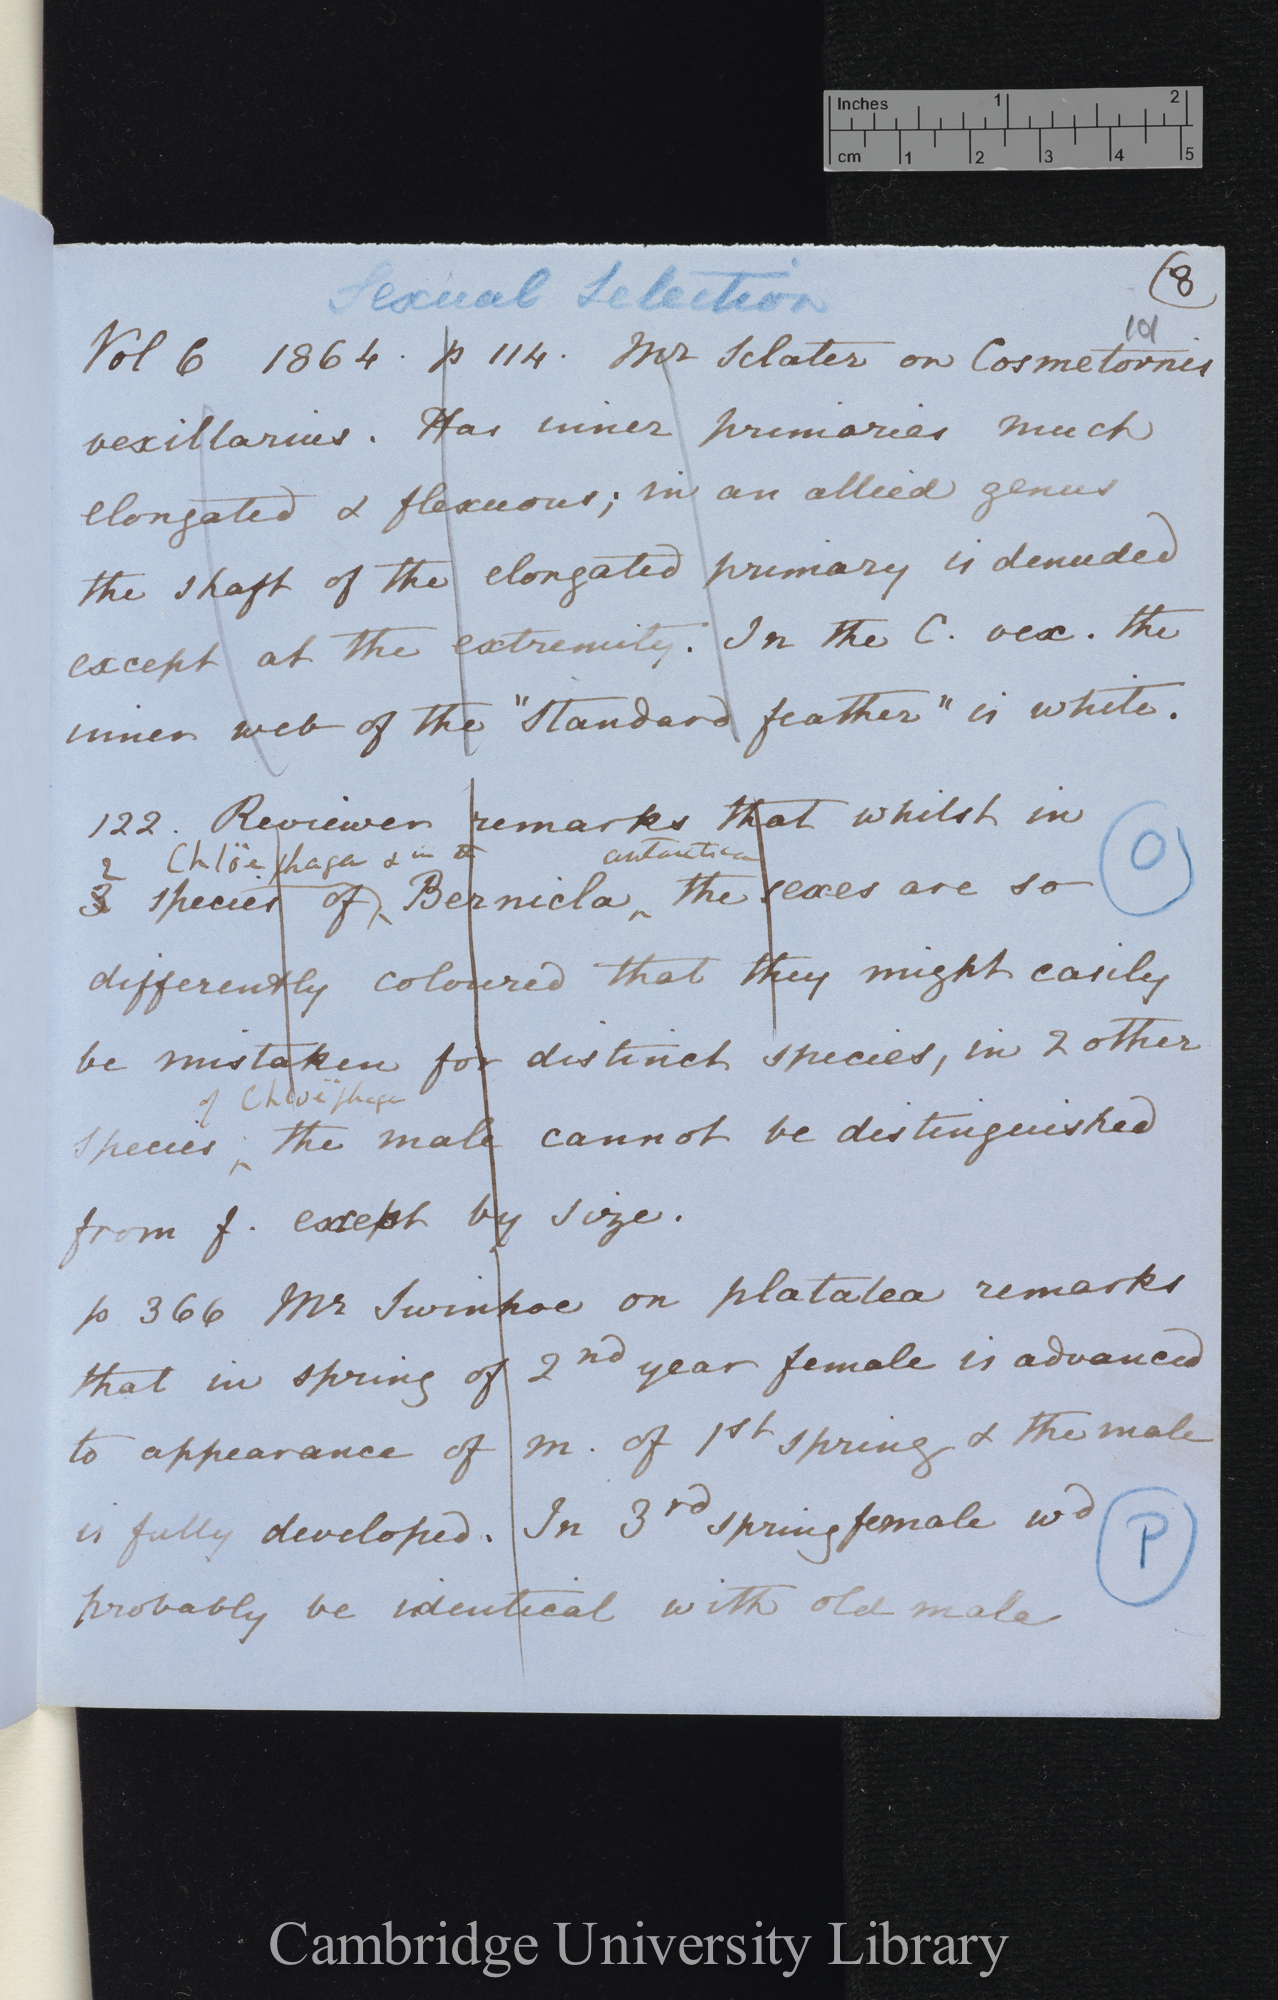 Inches 1 2
cm 1 2 3 4 5
Sexual Selection
(8
101
Vol 6 1864. p 114. Mr Sclater on Cosmetornis
vexillarius. Has inner primaries much
elongated & flexuous; in an allied genus
the shaft of the elongated primary is denuded
except at the extremity. In the C. vex. the
inner web of the "Standard feather" is white.
122. Reviewer remarks that whilst in
2 Chlöephaga & in the antarctica
3 species of ‸ Bernicla ‸ the sexes are so
O
differently coloured that they might easily
be mistaken for distinct species, in 2 other
of Chloëphaga
species ‸ the male cannot be distinguished
from f. except by size.
p 366 Mr Swinhoe on platalea remarks
that in spring of 2nd year female is advanced
to appearance of m. of 1st spring & the male
is fully developed. In 3rd spring female wd
P
probably be identical with old male
Cambridge University Library